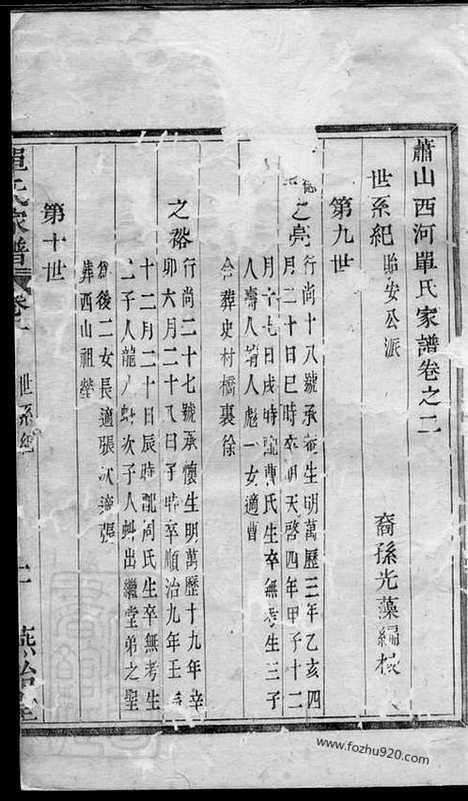 蕭山西河單氏家譜卷之二
世系紀 貽安公派 裔孫光藻編核
第九世
之亮 行尚十八號承 生明萬歷三年乙亥四
月二十日巳時卒明天啓四年甲子十二
月 日戌時 曹氏生卒無考生三子
人壽人 人彪一女適曹
合葬史村橋裏徐
之裕 行尚二十七號承懷生明萬歷十九年辛
卯六月二十八日子時卒順治九年壬
十二月二十日辰時配周氏生卒無考生
二子人龍人 次子人 出繼堂弟之聖
為後二女長適張次適張
葬西山祖塋
第十世
單氏家譜 卷之 世系紀 燕詒堂
www.fozhu920.com